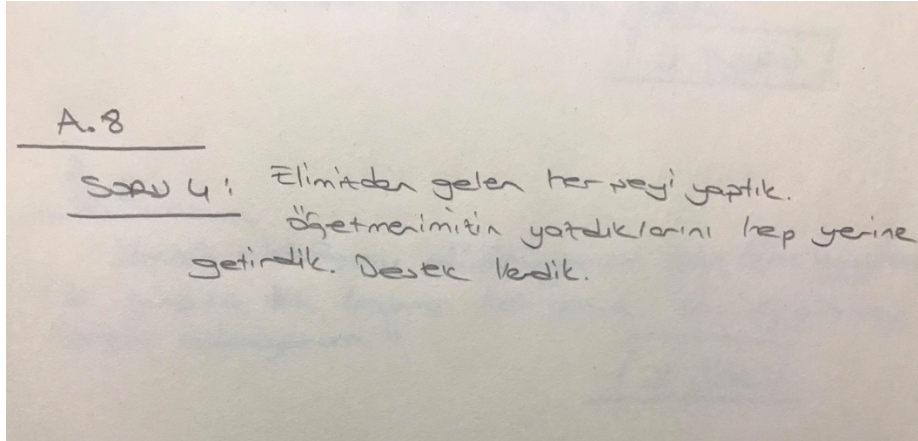 A.8
SORU 4: Elimizden gelen her şeyi yaptık.
Öğetmenimizin yazdıklarını hep yerine
getirdik. Destek Verdik.